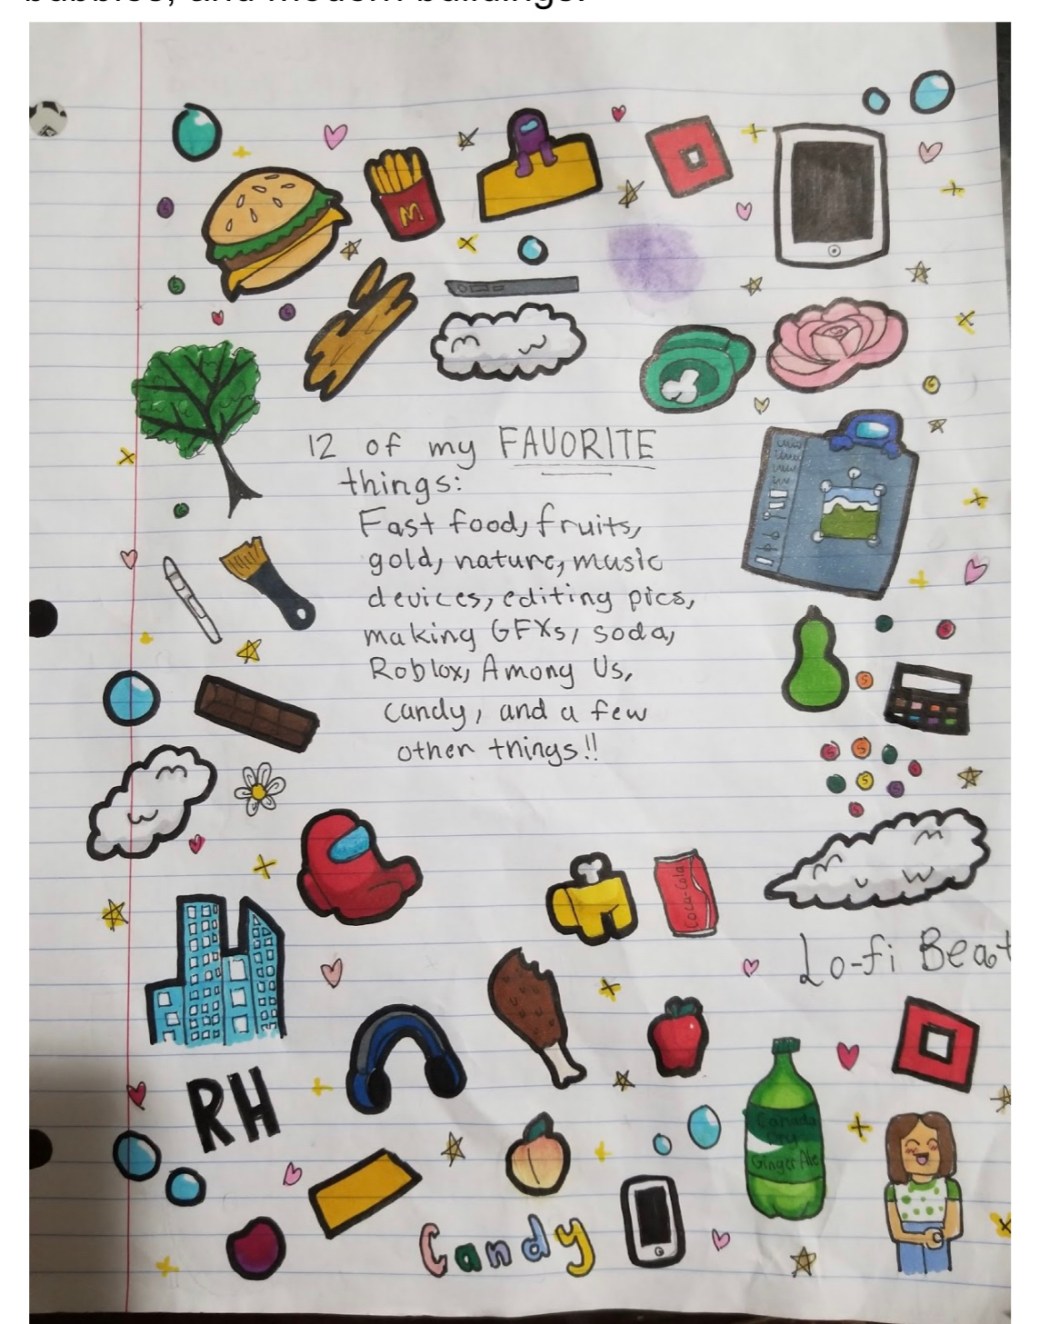 bubbles, and modern buildings.
M
12 of my FAVORITE
things:
Fast food, fruits,
gold, nature, music
devices, editing pics,
making GFXs, soda,
Roblox, Among Us,
candy, and a few
other things!!
Coca-Cola
Lo-fi Beat
RH
Canada
Dry
Ginger Ale
Candy